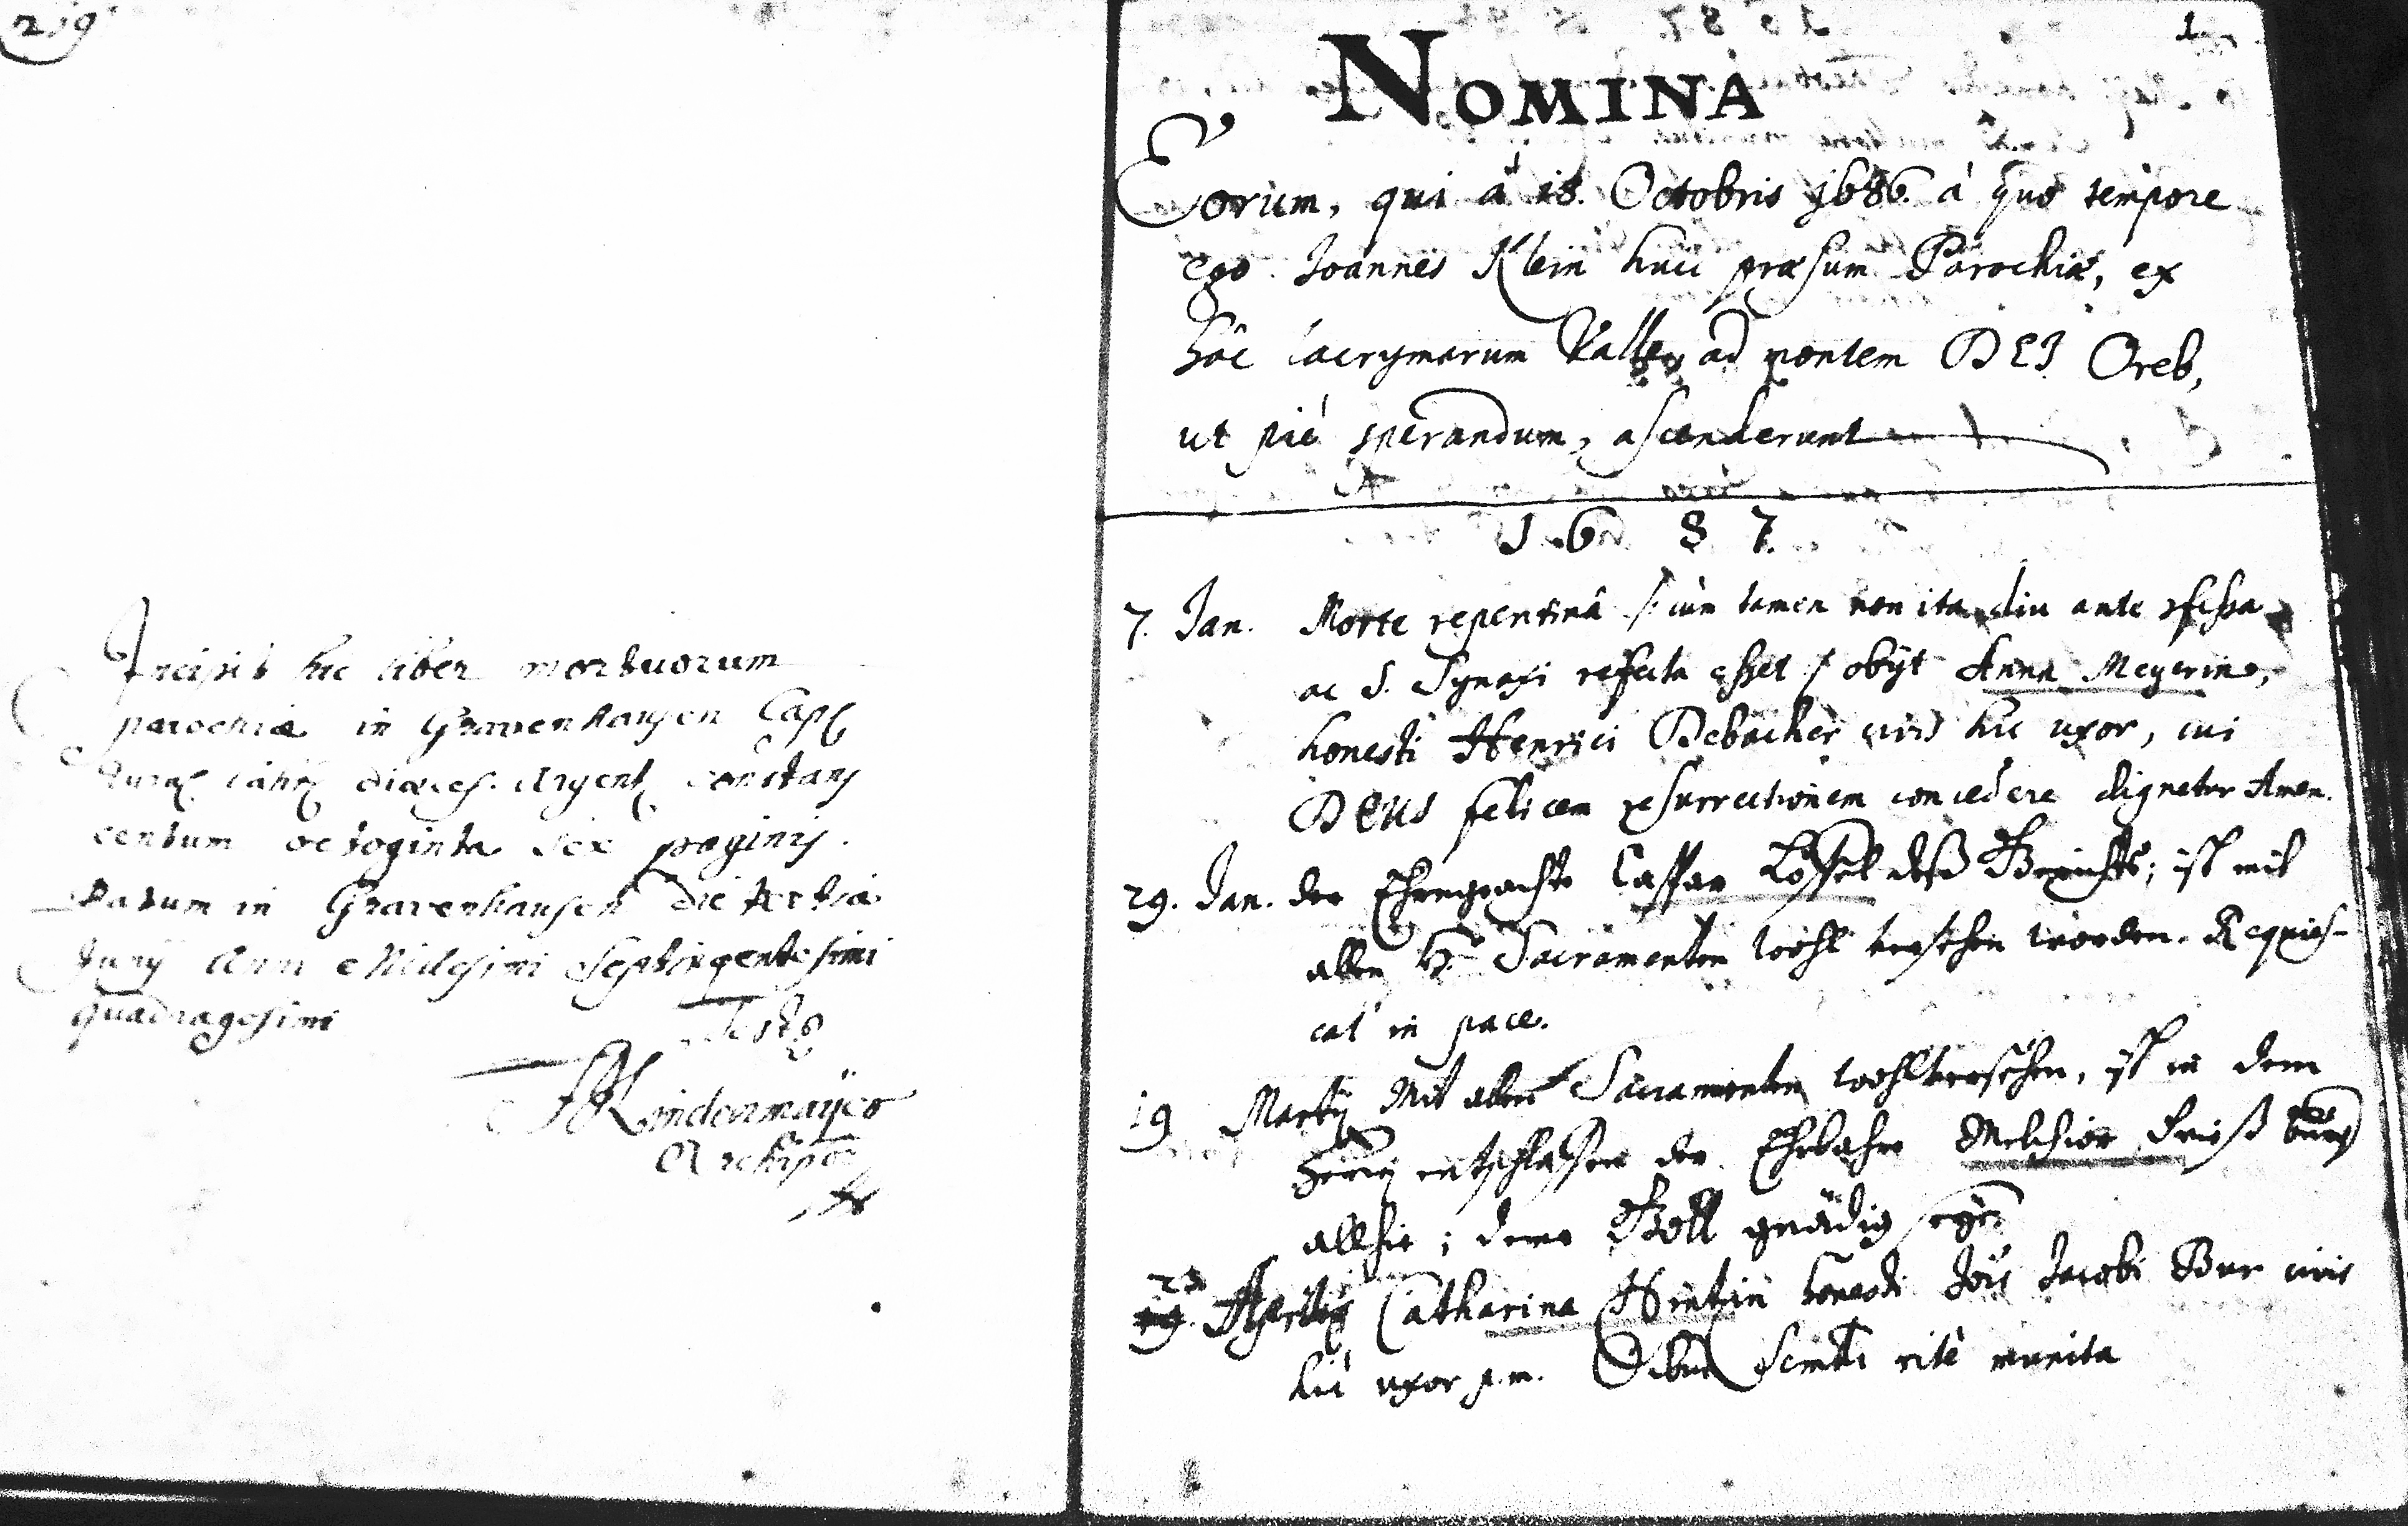 219
Incipit hic liber mortuorum
parochiæ in Gravenhausen Cap
rural diœces. Argent constans
centum octoginta sex paginis.
Datum in Gravenhausen die tertia
Junÿ Anni Millesimi Septingentesimi
quadragesimi
Archipr
1
NOMINA
Eorum, qui à 18. Octobris 1686. à quo tempore
ego Joannes Klein huic præsum Parochiæ, ex
hâc lacrymarum Valle, ad montem DEI Oreb,
ut piè sperandum, ascenderunt
1687.
7. Jan. Morte repentinâ /: cùm tamen non ita diu ante
ac S. Synaxi refecta esset / obÿt Anna Meyerin,
honesti Henrici Debacher civis hic uxor, cui
DEUS felicem resurrectionem concedere dignetur Amen.
29. Jan. der Ehrngeachte Caspar Lössel deß Gerichts; ist mit
allen H. Sacramenten wohl versehen worden. Requies-
cat in pace.
19 Martÿ Mit allen Sacramenten wohl versehen, ist in dem
Herrn entschlaffen der Ehrbahre Melchior Frieß
allhie; deme Gott gnädig seye
Aprilis Catharina honesti Jois Jacobi Bur civis
hic uxor p.m. rite munita